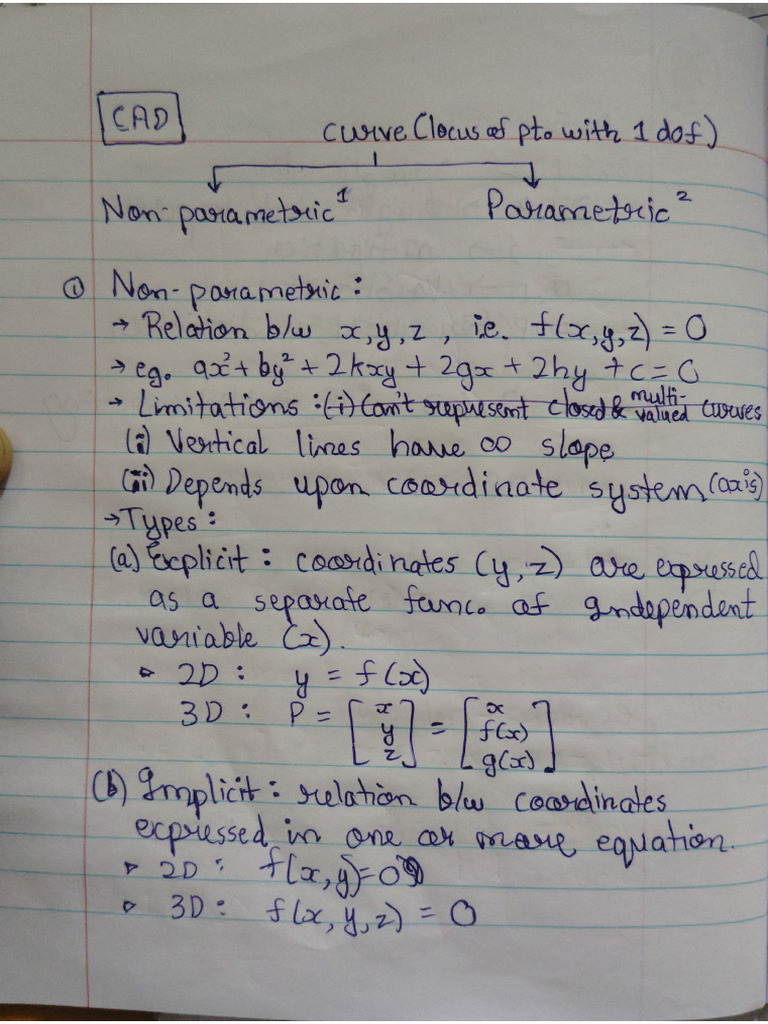 CAD
curve (locus of pto with 1 dof)
Non-parametric¹ Parametric²
① Non-parametric:
→ Relation b/w x, y, z, i.e. f(x, y, z) = 0
→ eg. ax² + by² + 2kxy + 2gx + 2hy + c = 0
→ Limitations: (i) Can't represent closed & multi-valued curves
(i) Vertical lines have ∞ slope
(ii) Depends upon coordinate system (axis)
→ Types:
(a) Explicit: coordinates (y, z) are expressed
as a separate func. of independent
variable (x).
▹ 2D: y = f(x)
3D: P = [x y z] = [x f(x) g(x)]
(b) Implicit: relation b/w coordinates
expressed in one or more equation.
▹ 2D: f(x, y) = 0
▹ 3D: f(x, y, z) = 0